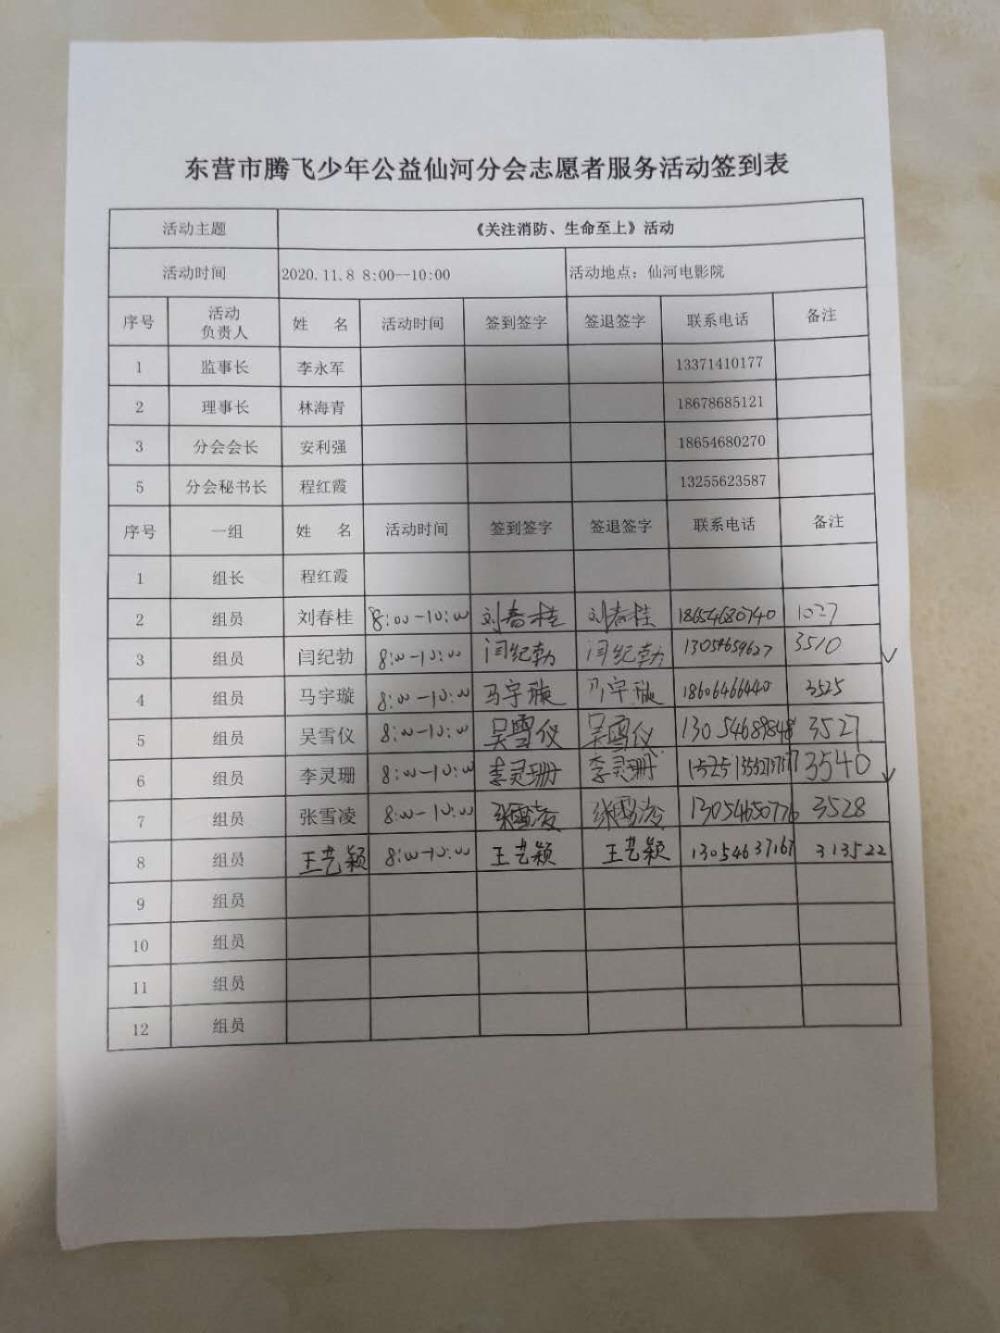 东营市腾飞少年公益仙河分会志愿者服务活动签到表
活动主题 《关注消防、生命至上》活动
活动时间 2020.11.8 8:00--10:00 活动地点：仙河电影院
序号 活动负责人 姓 名 活动时间 签到签字 签退签字 联系电话 备注
1 监事长 李永军 13371410177
2 理事长 林海青 18678685121
3 分会会长 安利强 18654680270
5 分会秘书长 程红霞 13255623587
序号 一组 姓 名 活动时间 签到签字 签退签字 联系电话 备注
1 组长 程红霞
2 组员 刘春桂 8:00-10:00 刘春桂 刘春桂 18654680740 1027
3 组员 闫纪勃 8:00-10:00 闫纪勃 闫纪勃 13054659627 3510
4 组员 马宇璇 8:00-10:00 马宇璇 马宇璇 18606466440 3525
5 组员 吴雪仪 8:00-10:00 吴雪仪 吴雪仪 13054689848 3527
6 组员 李灵珊 8:00-10:00 李灵珊 李灵珊 3540
7 组员 张雪凌 8:00-10:00 张雪凌 张雪凌 13054650776 3528
8 组员 王艺颖 8:00-10:00 王艺颖 王艺颖 13054637167 313522
9 组员
10 组员
11 组员
12 组员